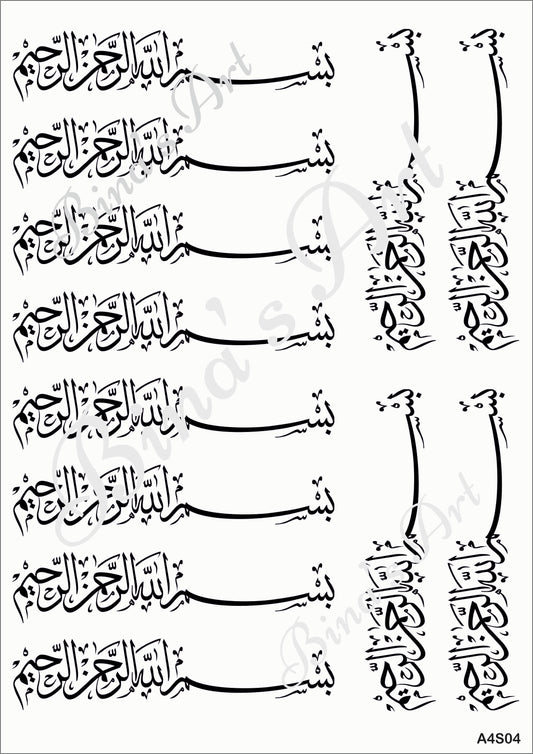 بسم الله الرحمن الرحيم
بسم الله الرحمن الرحيم
بسم الله الرحمن الرحيم
بسم الله الرحمن الرحيم
بسم الله الرحمن الرحيم
بسم الله الرحمن الرحيم
بسم الله الرحمن الرحيم
بسم الله الرحمن الرحيم
بسم الله الرحمن الرحيم
بسم الله الرحمن الرحيم
بسم الله الرحمن الرحيم
بسم الله الرحمن الرحيم
Bina's Art
Bina's Art
Bina's Art
A4S04